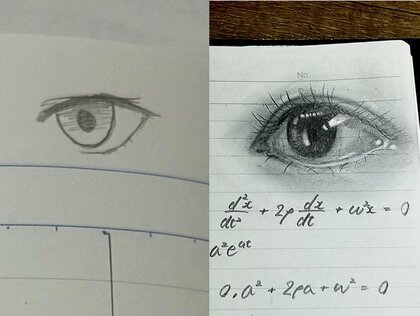 No.
d²x/dt² + 2ρ dx/dt + ω²x = 0
a²eᵃᵗ
0, a² + 2ρa + ω² = 0